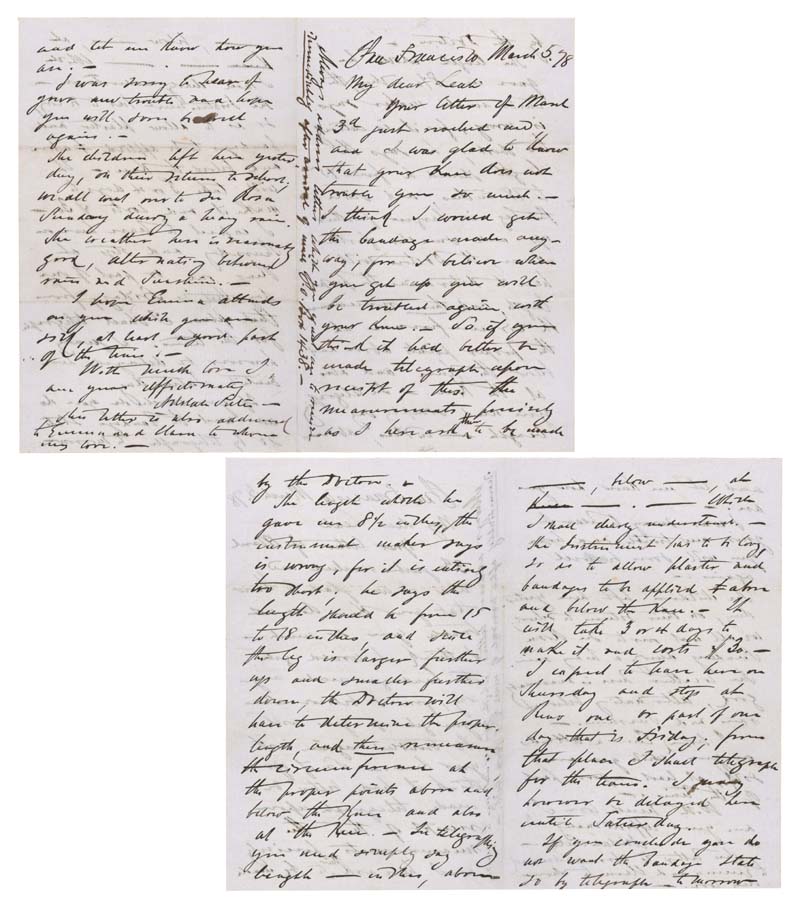 San Francisco March 5. 78
My dear Leah
Your letter of March
3d just reached me
and I was glad to know
that your knee does not
trouble you so much. —
I think I would get
the bandage made any-
way, for I believe when
you get up you will
be troubled again with
your knee. — So if you
think it had better be
made telegraph upon
receipt of this the
measurements precisely
as I here ask them to be made
by the Doctor. —
The length which he
gave me 8½ inches, the
instrument maker says
is wrong, for it is entirely
too short, he says the
length should be from 15
to 18 inches, and since
the leg is larger further
up and smaller further
down, the Doctor will
have to determine the proper
length, and then remeasure
the circumference at
the proper points above and
below the Knee and also
at the Knee. — In telegraphing
you need simply say
Length — inches, above
—, below —, at
Knee —. — Which
I shall clearly understand. —
The Instrument has to be long
so as to allow plaster and
bandages to be applied above
and below the Knee. — It
will take 3 or 4 days to
make it and costs $30. —
I expect to leave here on
Thursday and stop at
Reno one or part of one
day that is Friday, from
that place I shall telegraph
for the team. I may
however be delayed here
until Saturday.
— If you conclude you do
not want the bandage state
so by telegraph to-morrow
and let me know how you
are. —
I was sorry to hear of
your new trouble and hope
you will soon be well
again. —
The children left here yester-
day, on their return to school,
we all went over to see Rosa
Sunday during a heavy rain.
The weather here is reasonably
good, alternating between
rain and Sunshine. —
I hope Emma attends
on you which you are
self, at least a good part
of the time. —
With much love I
am yours affectionately
Adolph Sutro —
This letter is also addressed
to Emma and Clara to whom
my love. —
Always address letters which you
immediately after arrival of mail P.O. Box 1438. —